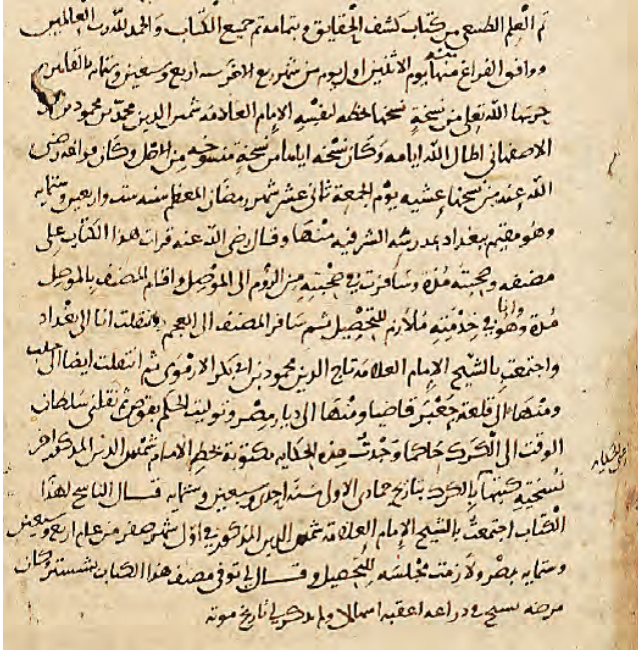 تم العلم الطبيعي من كتاب كشف الحقايق وبتمامه تم جميع الكتاب والحمد لله رب العالمين
ووافق الفراغ منها يوم الاثنين اول يوم من شهر ربيع الاخر سنه اربع وسبعين وستمايه بالقاهره
حرسها الله تعلى من نسخةٍ نسخها بخطه لنفسه الإمام العلامه شمس الدين محمد بن محمود بن
الاصفهاني اطال الله ايامه وكان نسخه اياها من نسخةٍ منسوخه من الاصل وكان فراغه رضى
الله عنه من نسخها عشيه يوم الجمعة ثانى عشر شهر رمضان المعظم سنه ست واربعين وستمايه
وهو مقيم ببغداد بمدرسه الشرفيه منها وقال رضى الله عنه قرات هذا الكتاب على
مصنفه وصحبته مُدة وسافرت في صحبته من الرُوم الى الموصل واقام المصنف بالموصل
مُدة وانا وهو في خدمته ملازم للتحصيل ثم سافر المصنف الى العجم وتنقلت انا الى بغداد
واجتمعت بالشيخ الإمام العلامة تاج الدين محمود بن ابى بكر الارموى ثم انتقلت ايضا الى حلب
ومنها الى قلعة جَعْبَر قاضيا ومنها الى ديار مصر وتوليت الحكم بقوص ثم نقلنى سلطان
الوقت الى الكرك حاكما وَجَدتُ هذه الحكايه مكتوبة بخط الامام شمس الدين المذكور اخر
نسخته كتبها بالكرك بتاريخ جمادى الاولى سنة احدى وسبعين وستمايه قال الناسخ لهذا
الكتاب اجتمعتُ بالشيخ الإمام العلامة شمس الدين المذكور في اول شهر صفر من عام اربع وسبعين
وستمايه بمصر ولازمت مجلسَه للتحصيل وقال لى توفى مصنف هذا الكتاب بشستر وكان
مرضه في دراعه اعقبه اسهال ولم يذكر لى تاريخ موته